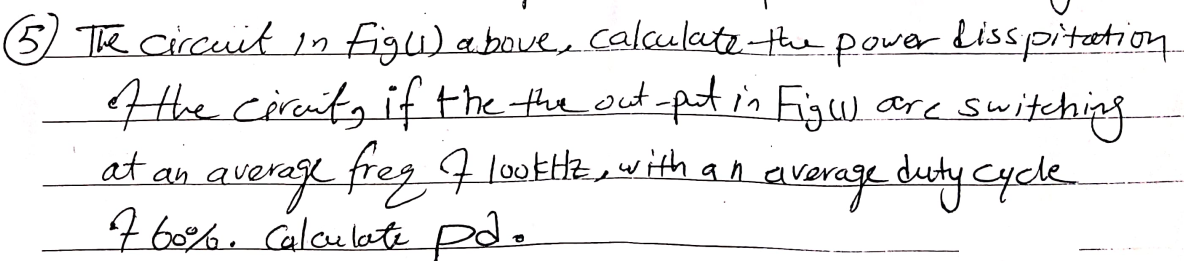 (5) The circuit in Fig(1) above, calculate the power disspitation
of the circuit, if the the out-put in Fig(1) are switching
at an average freq of 100kHz, with an average duty cycle
of 60%. Calculate pd.